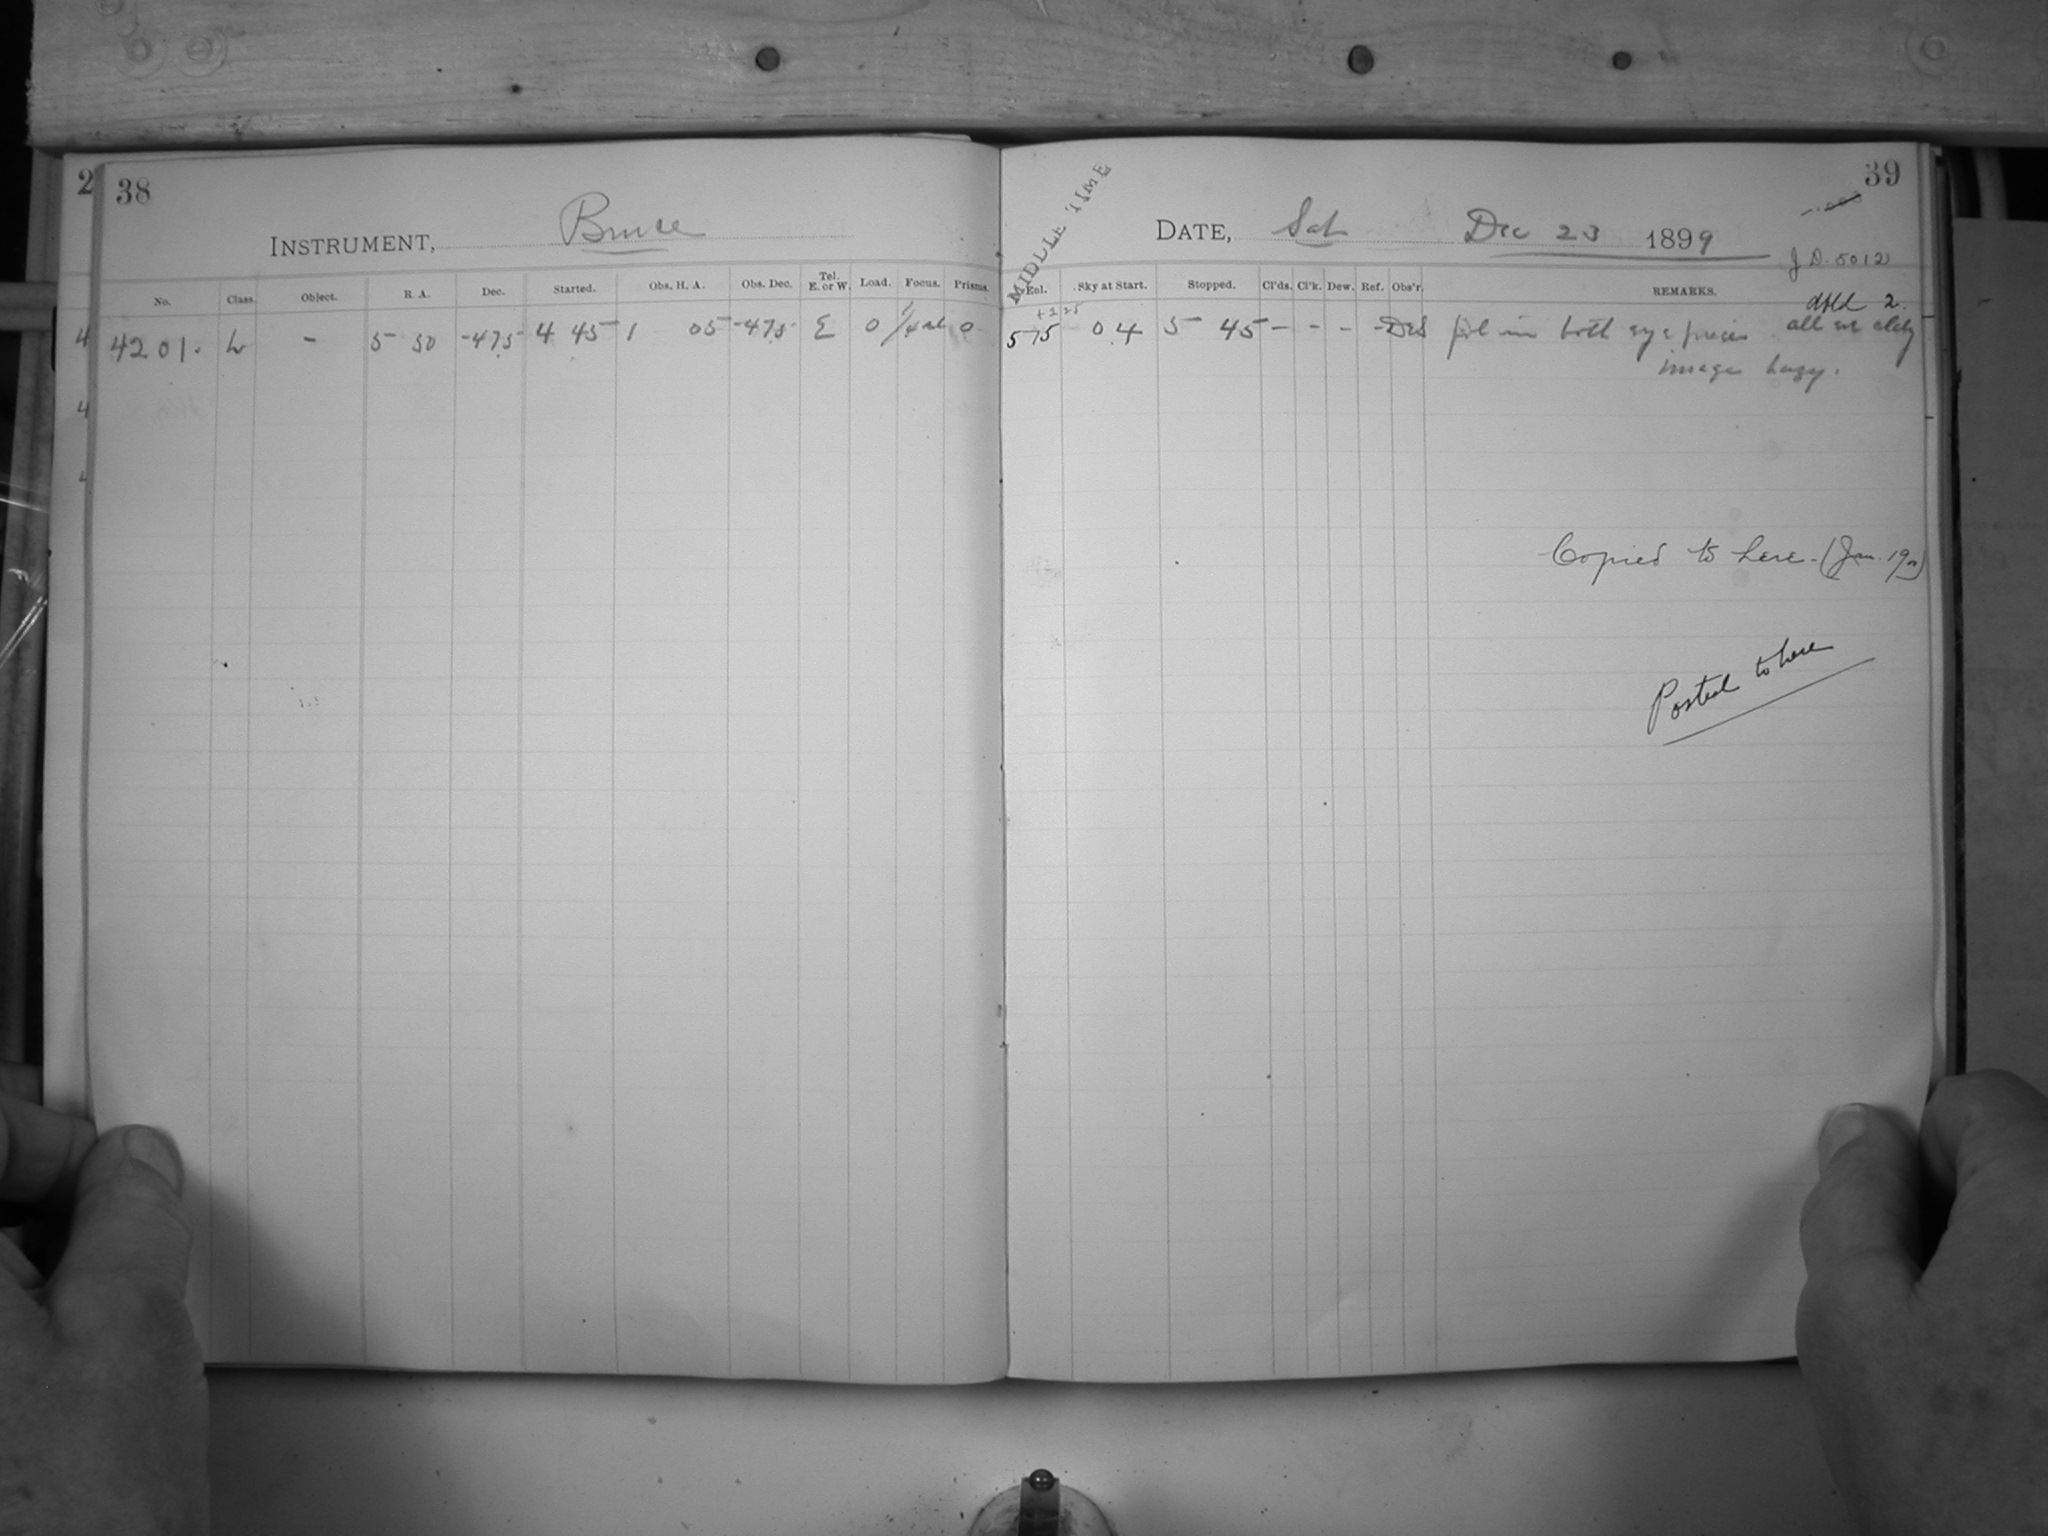 2 38
INSTRUMENT, Bruce
No. Class. Object. R. A. Dec. Started. Obs. H. A. Obs. Dec. Tel. E. or W. Load. Focus. Prisms.
4201. L - 5 50 -47.5 4 45 1 05 -47.5 E 0 0
MIDDLE TIME
39
DATE, Sat Dec 23 1899
J D. 5012
Enl. Sky at Start. Stopped. Cl'ds. Cl'k. Dew. Ref. Obs'r. REMARKS.
+2 25
5 15 0 4 5 45 - - - - in both eye pieces all
image hazy.
Copied to here. (Jan.
Posted to here